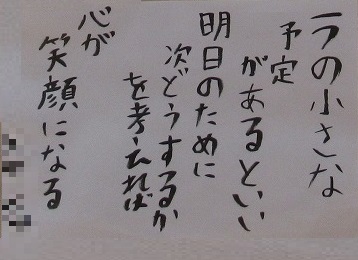 一つの小さな
予定
があるといい
明日のために
次どうするか
を考えれば
心が
笑顔になる